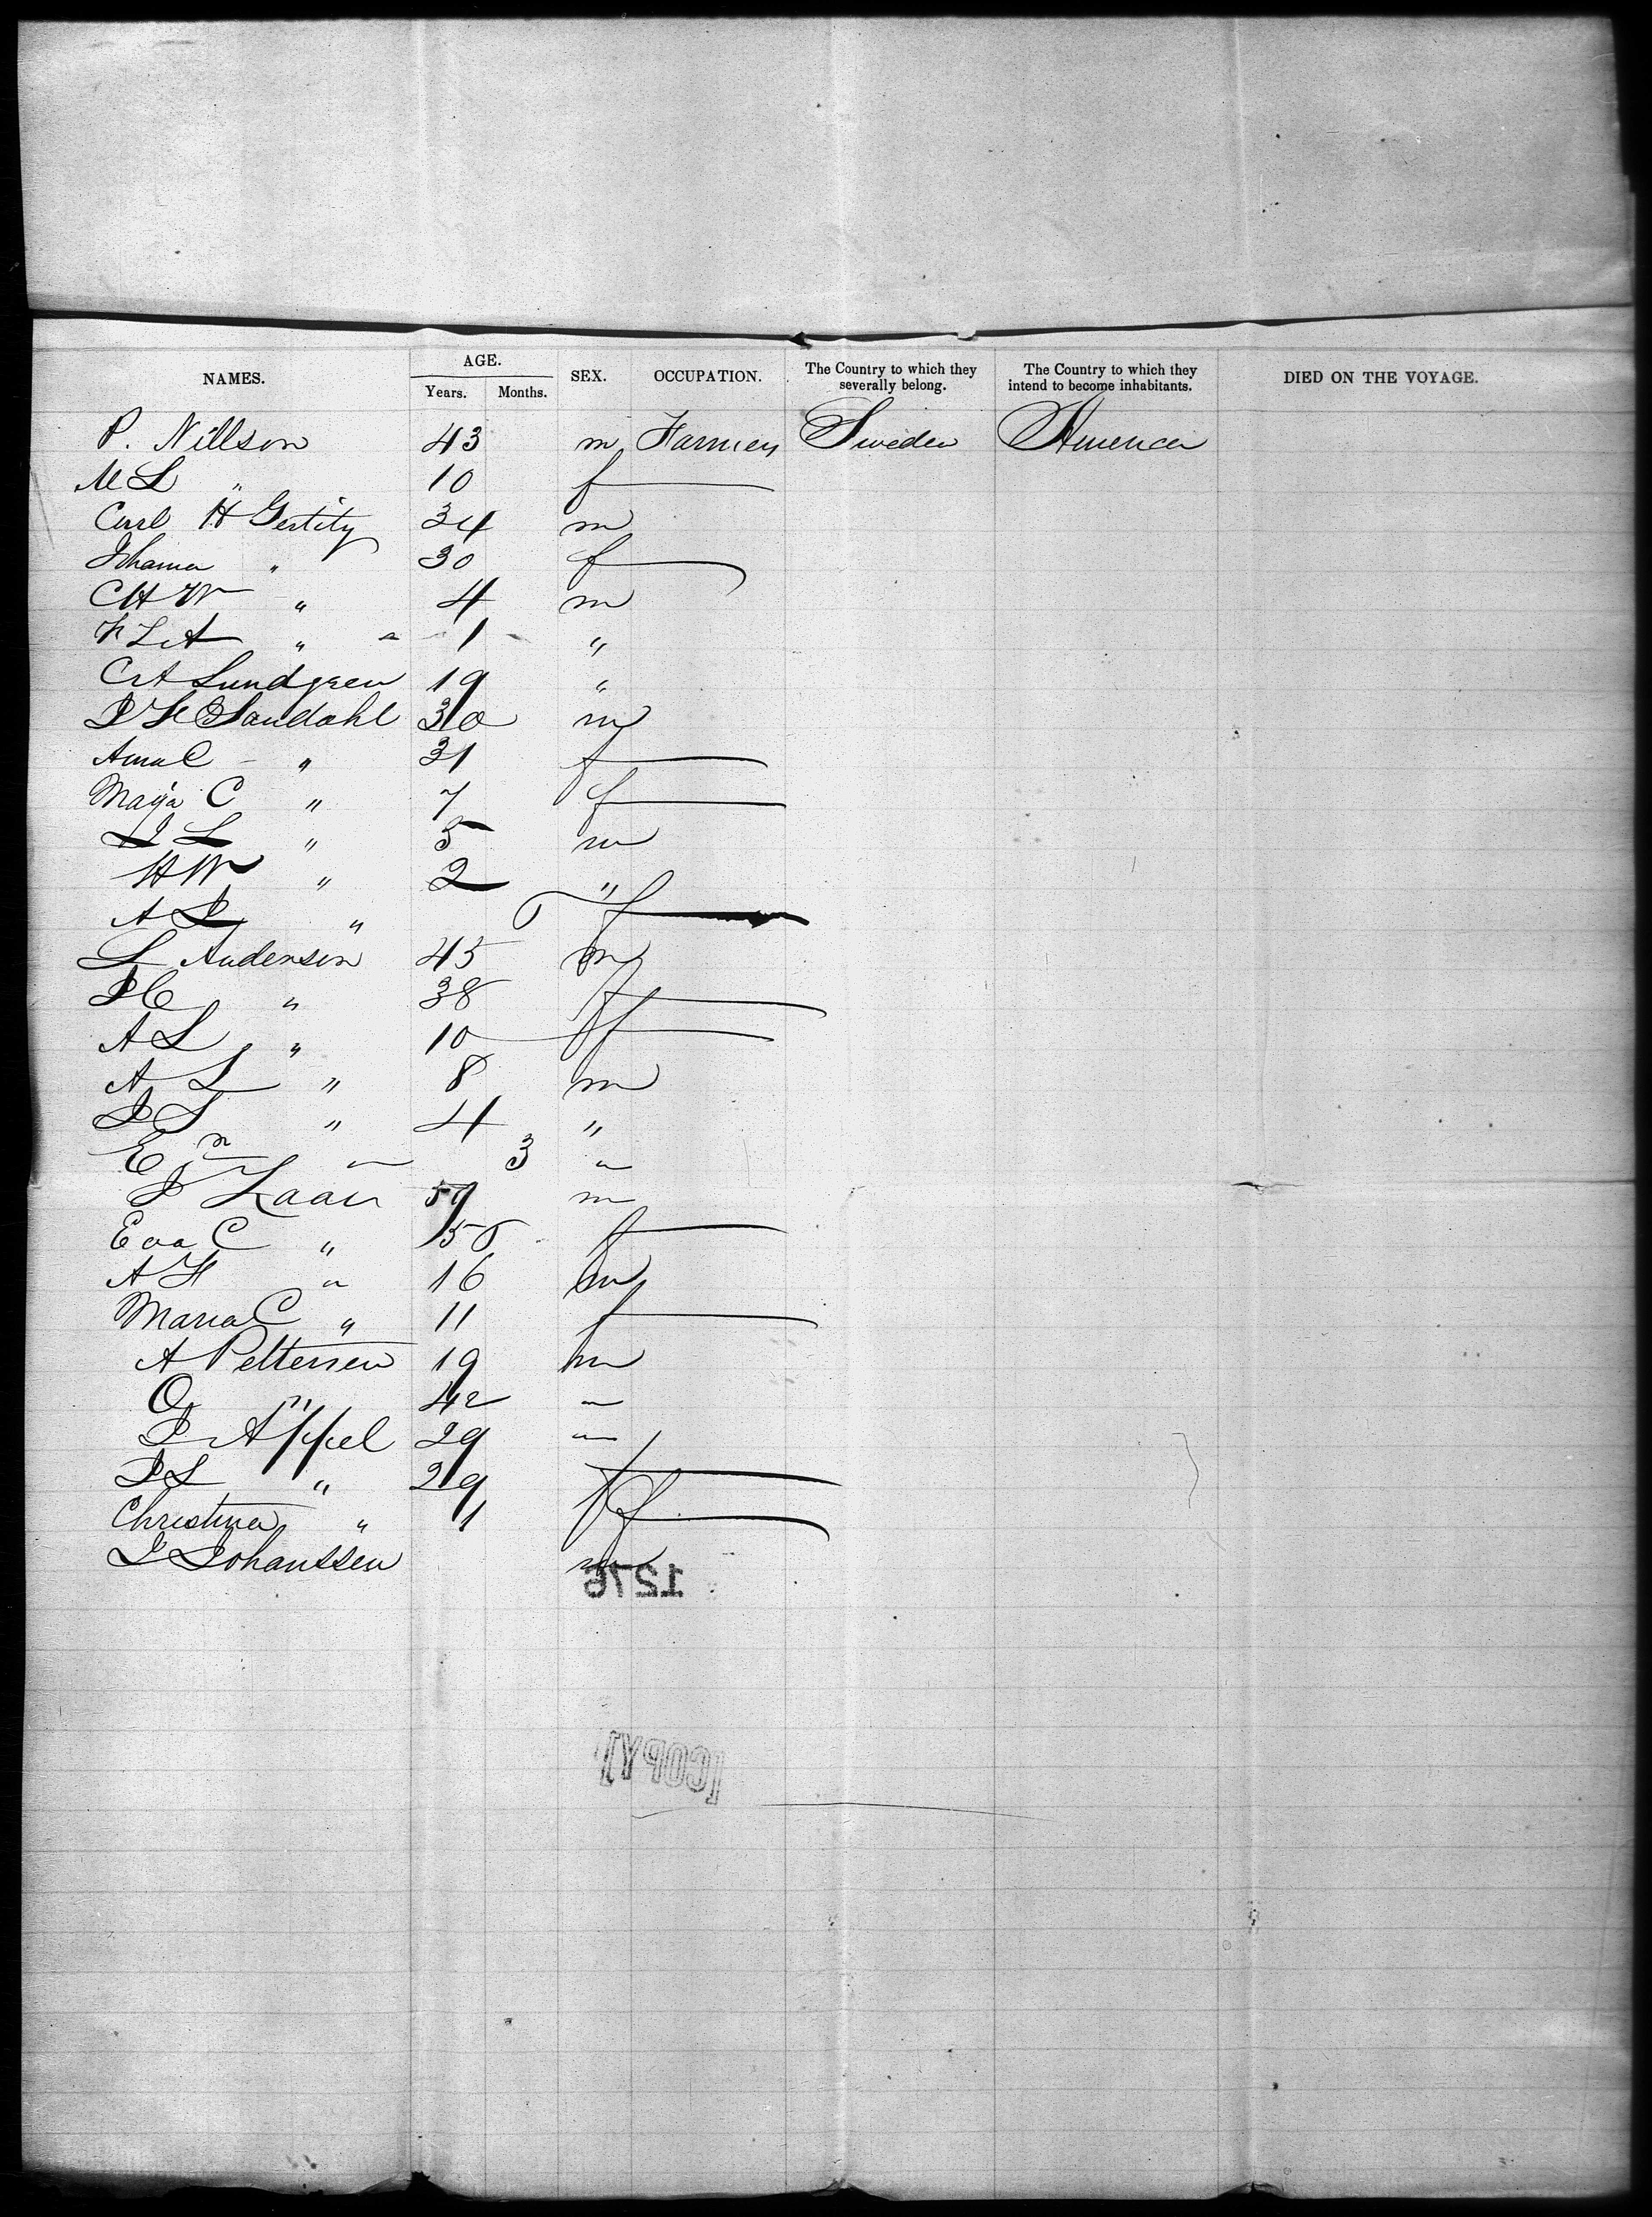 NAMES. AGE. Years. Months. SEX. OCCUPATION. The Country to which they severally belong. The Country to which they intend to become inhabitants. DIED ON THE VOYAGE.
P. Nillson 43 m Farmer Sweden America
M L " 10 f
Carl H 34 m
" 30 f
C H W " 4 m
" 1 "
C A Lundgren 19 "
Sandahl 30 m
Anna C " 31 f
Maja C " 7 f
J L " 5 m
H W " 2 "
A J " f
L Anderson 45 m
J C " 38 f
A L " 10 f
A L " 8 m
J L " 4 "
E " 3 "
J 59 m
Eva C " 50 f
A H " 16 m
Maria C " 11 f
A Pettersen 19 m
O " 42 "
J Appel 29 "
J L " 29 f
Christina " 1 f
J Johanssen m
1276
[COPY]